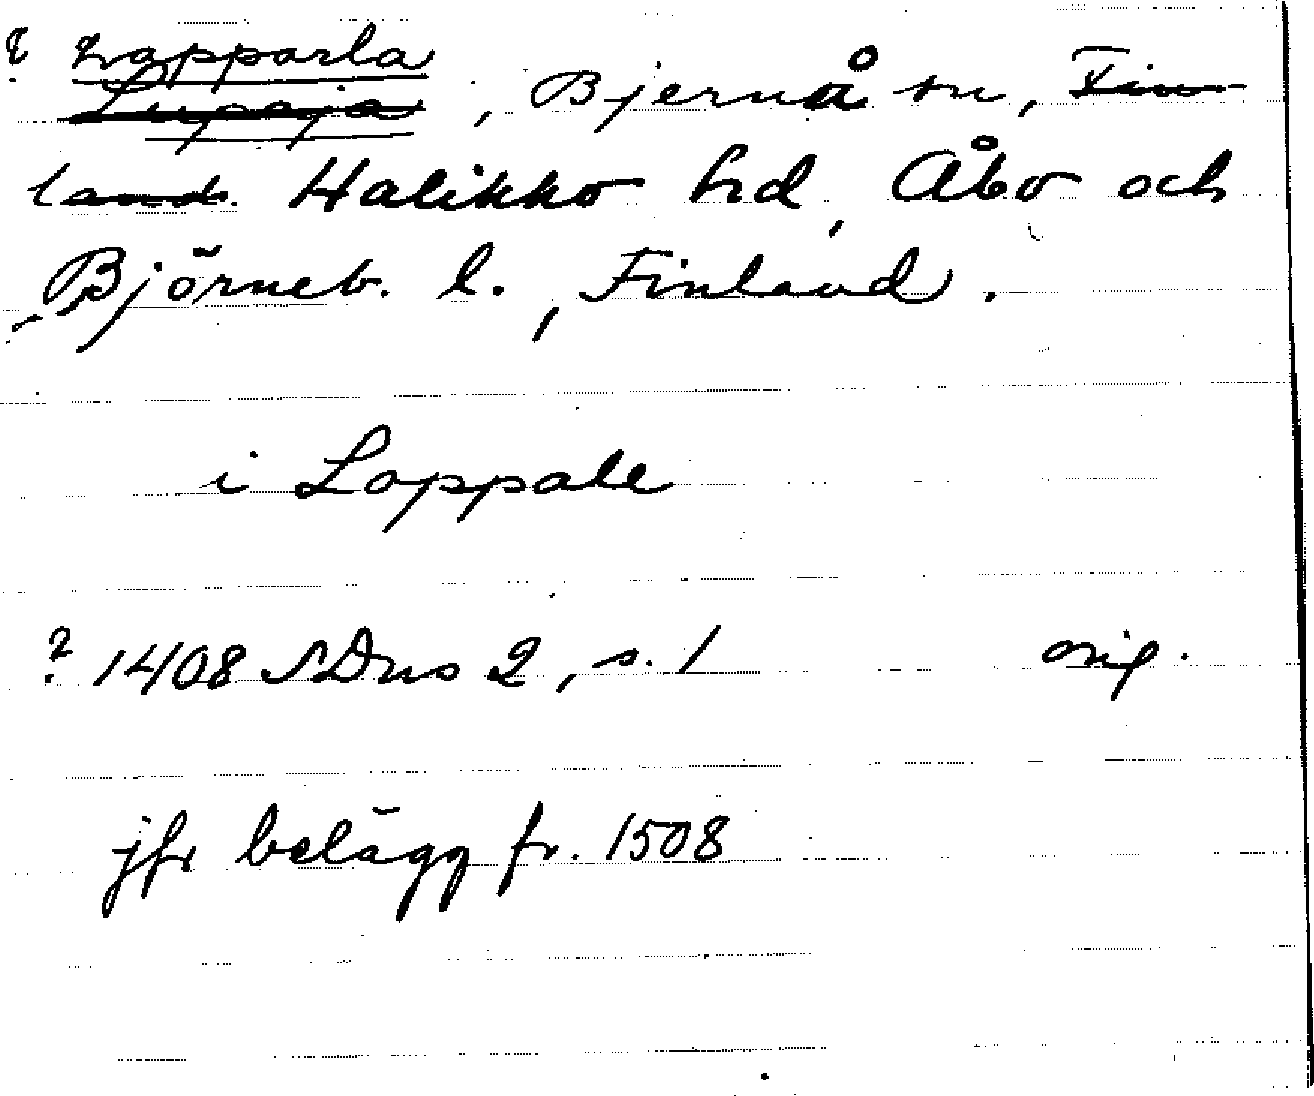 ? Lapparla
Lupaja, Bjernå sn, Fin-
land. Halikko hd, Åbo och
Björneb. l., Finland.
i Loppale
? 1408 SDns 2, s. 1 orig.
jfr belägg fr. 1508